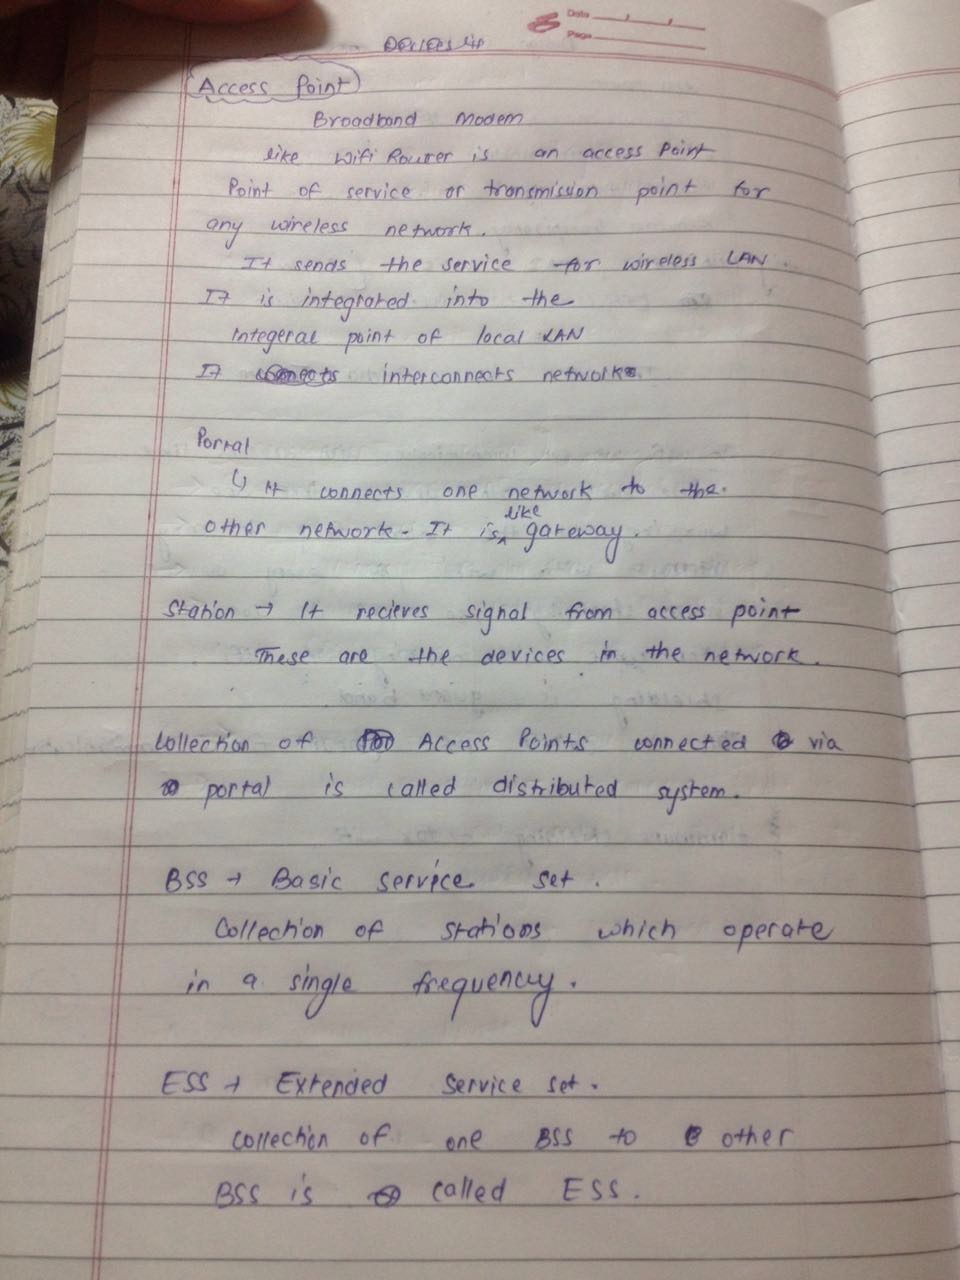 Date
Page
Access Point
Broadband Modem
like Wifi Router is an access Point
Point of service or transmission point for
any wireless network.
It sends the service for wireless LAN.
It is integrated into the
Integeral point of local LAN
It interconnects network
Portal
↳ It connects one network to the
other network. It is like gateway.
Station → It recieves signal from access point
These are the devices in the network.
Collection of Access Points connected via
portal is called distributed system.
BSS → Basic service set.
Collection of stations which operate
in a single frequency.
ESS → Extended Service set.
Collection of one BSS to other
BSS is called ESS.